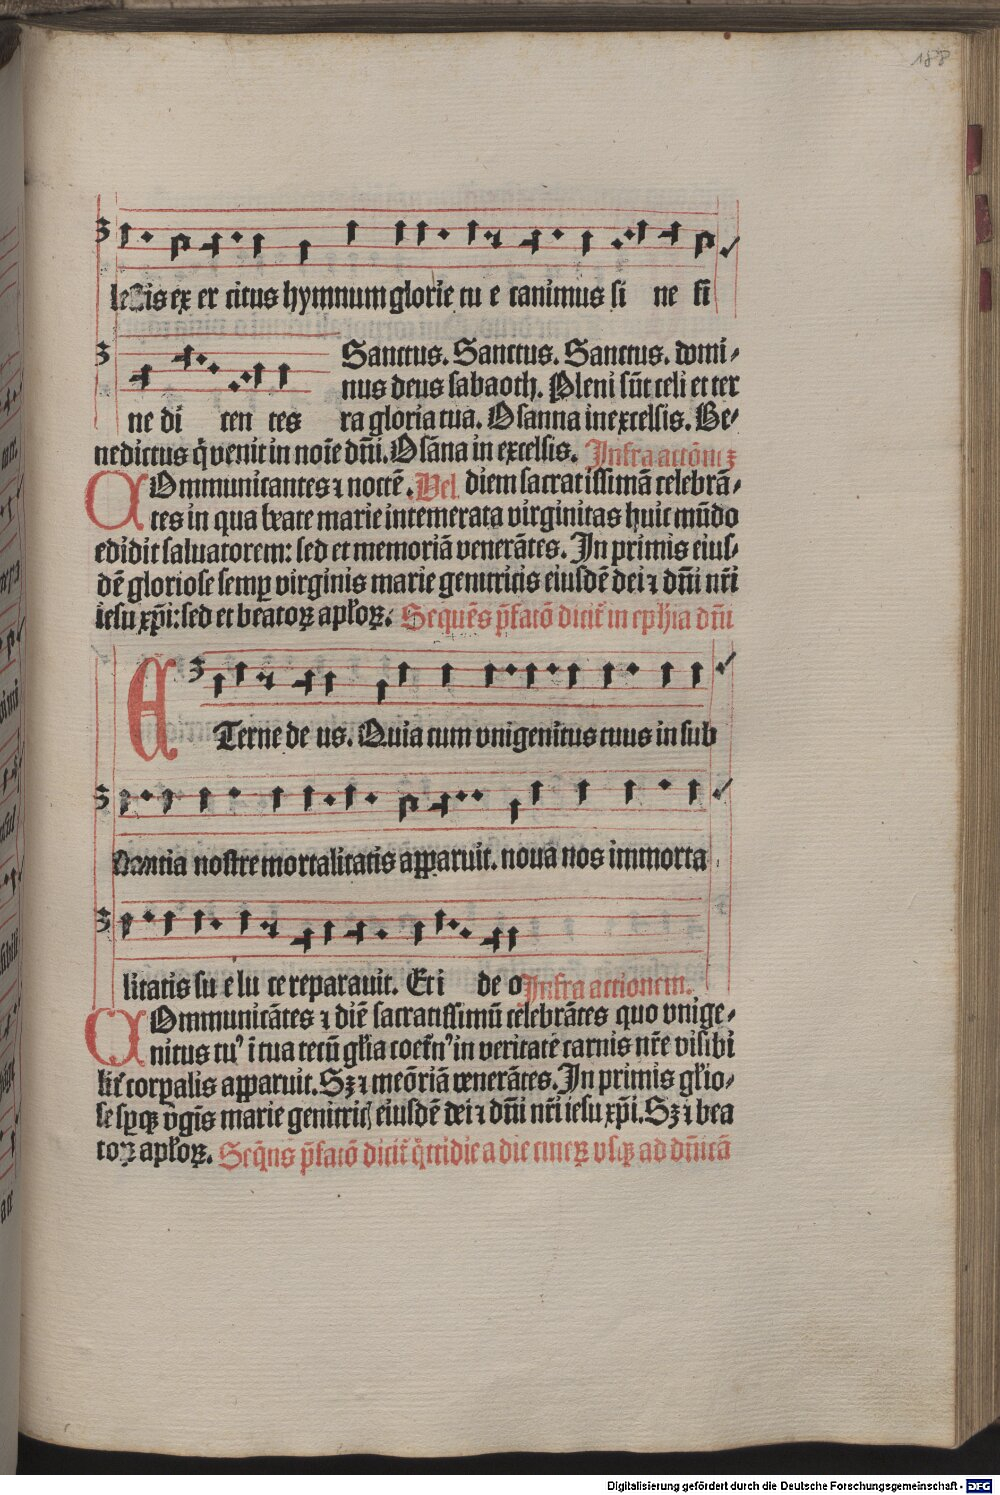 188
lestis ex er citus hymnum glorie tu e canimus si ne fi
Sanctus. Sanctus. Sanctus. domi⸗
nus deus sabaoth. Pleni sūt celi et ter
ne di cen tes ra gloria tua. Osanna in excelsis. Be⸗
nedictus q̄ venit in noīe dn̄i. Osāna in excelsis. Infra actōnēʒ
COmmunicantes ⁊ noctē. Vel diem sacratissimā celebrā⸗
tes in qua beate marie intemerata virginitas huic mūdo
edidit saluatorem: sed et memoriā venerātes. In primis eius⸗
dē gloriose semꝑ virginis marie genitricis eiusdē dei ⁊ dn̄i nr̄i
iesu xp̄i: sed et beatoꝝ apl̄oꝝ. Sequēs p̄fatō dicit̄ in eph̄ia dn̄i
ETerne de us. Quia cum vnigenitus tuus in sub
stantia nostre mortalitatis apparuit. nouā nos immorta
litatis su e lu ce reparauit. Et i de o Infra actionem.
COmmunicātes ⁊ diē sacratissimū celebrātes quo vnige⸗
nitus tuꝰ ī tua tecū gl̄ia coet̄nꝰ in veritate carnis nr̄e visibi
lit̄ corꝑalis apparuit. Sʒ ⁊ meōriā venerātes. In primis gl̄io⸗
se sp̄qꝫ v̄gīs marie genitricꝭ eiusdē dei ⁊ dn̄i nr̄i iesu xp̄i. Sʒ ⁊ bea
toꝝ apl̄oꝝ. Seq̄ns p̄fatō dicit̄ q̄ttidie a die cineꝝ vsqꝫ ad dn̄icā
Digitalisierung gefördert durch die Deutsche Forschungsgemeinschaft - DFG